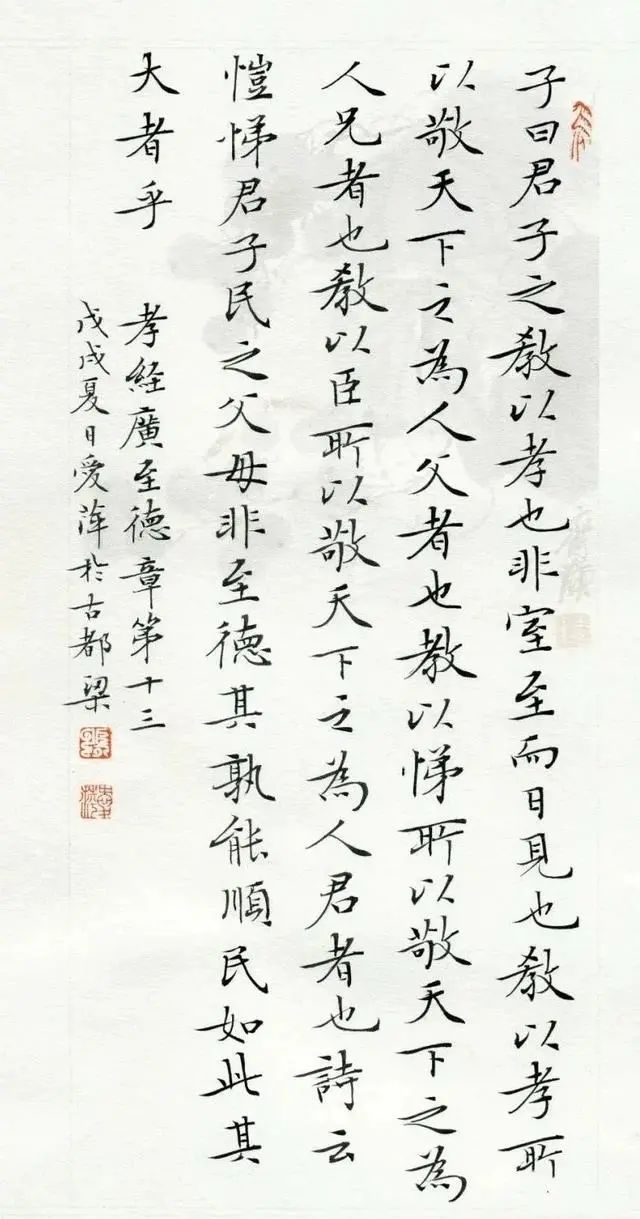 子曰君子之教以孝也非室至而日見也教以孝所
以敬天下之為人父者也教以悌所以敬天下之為
人兄者也教以臣所以敬天下之為人君者也詩云
愷悌君子民之父母非至德其孰能順民如此其
大者乎
孝経廣至德章第十三
戊戌夏日愛萍於古都梁